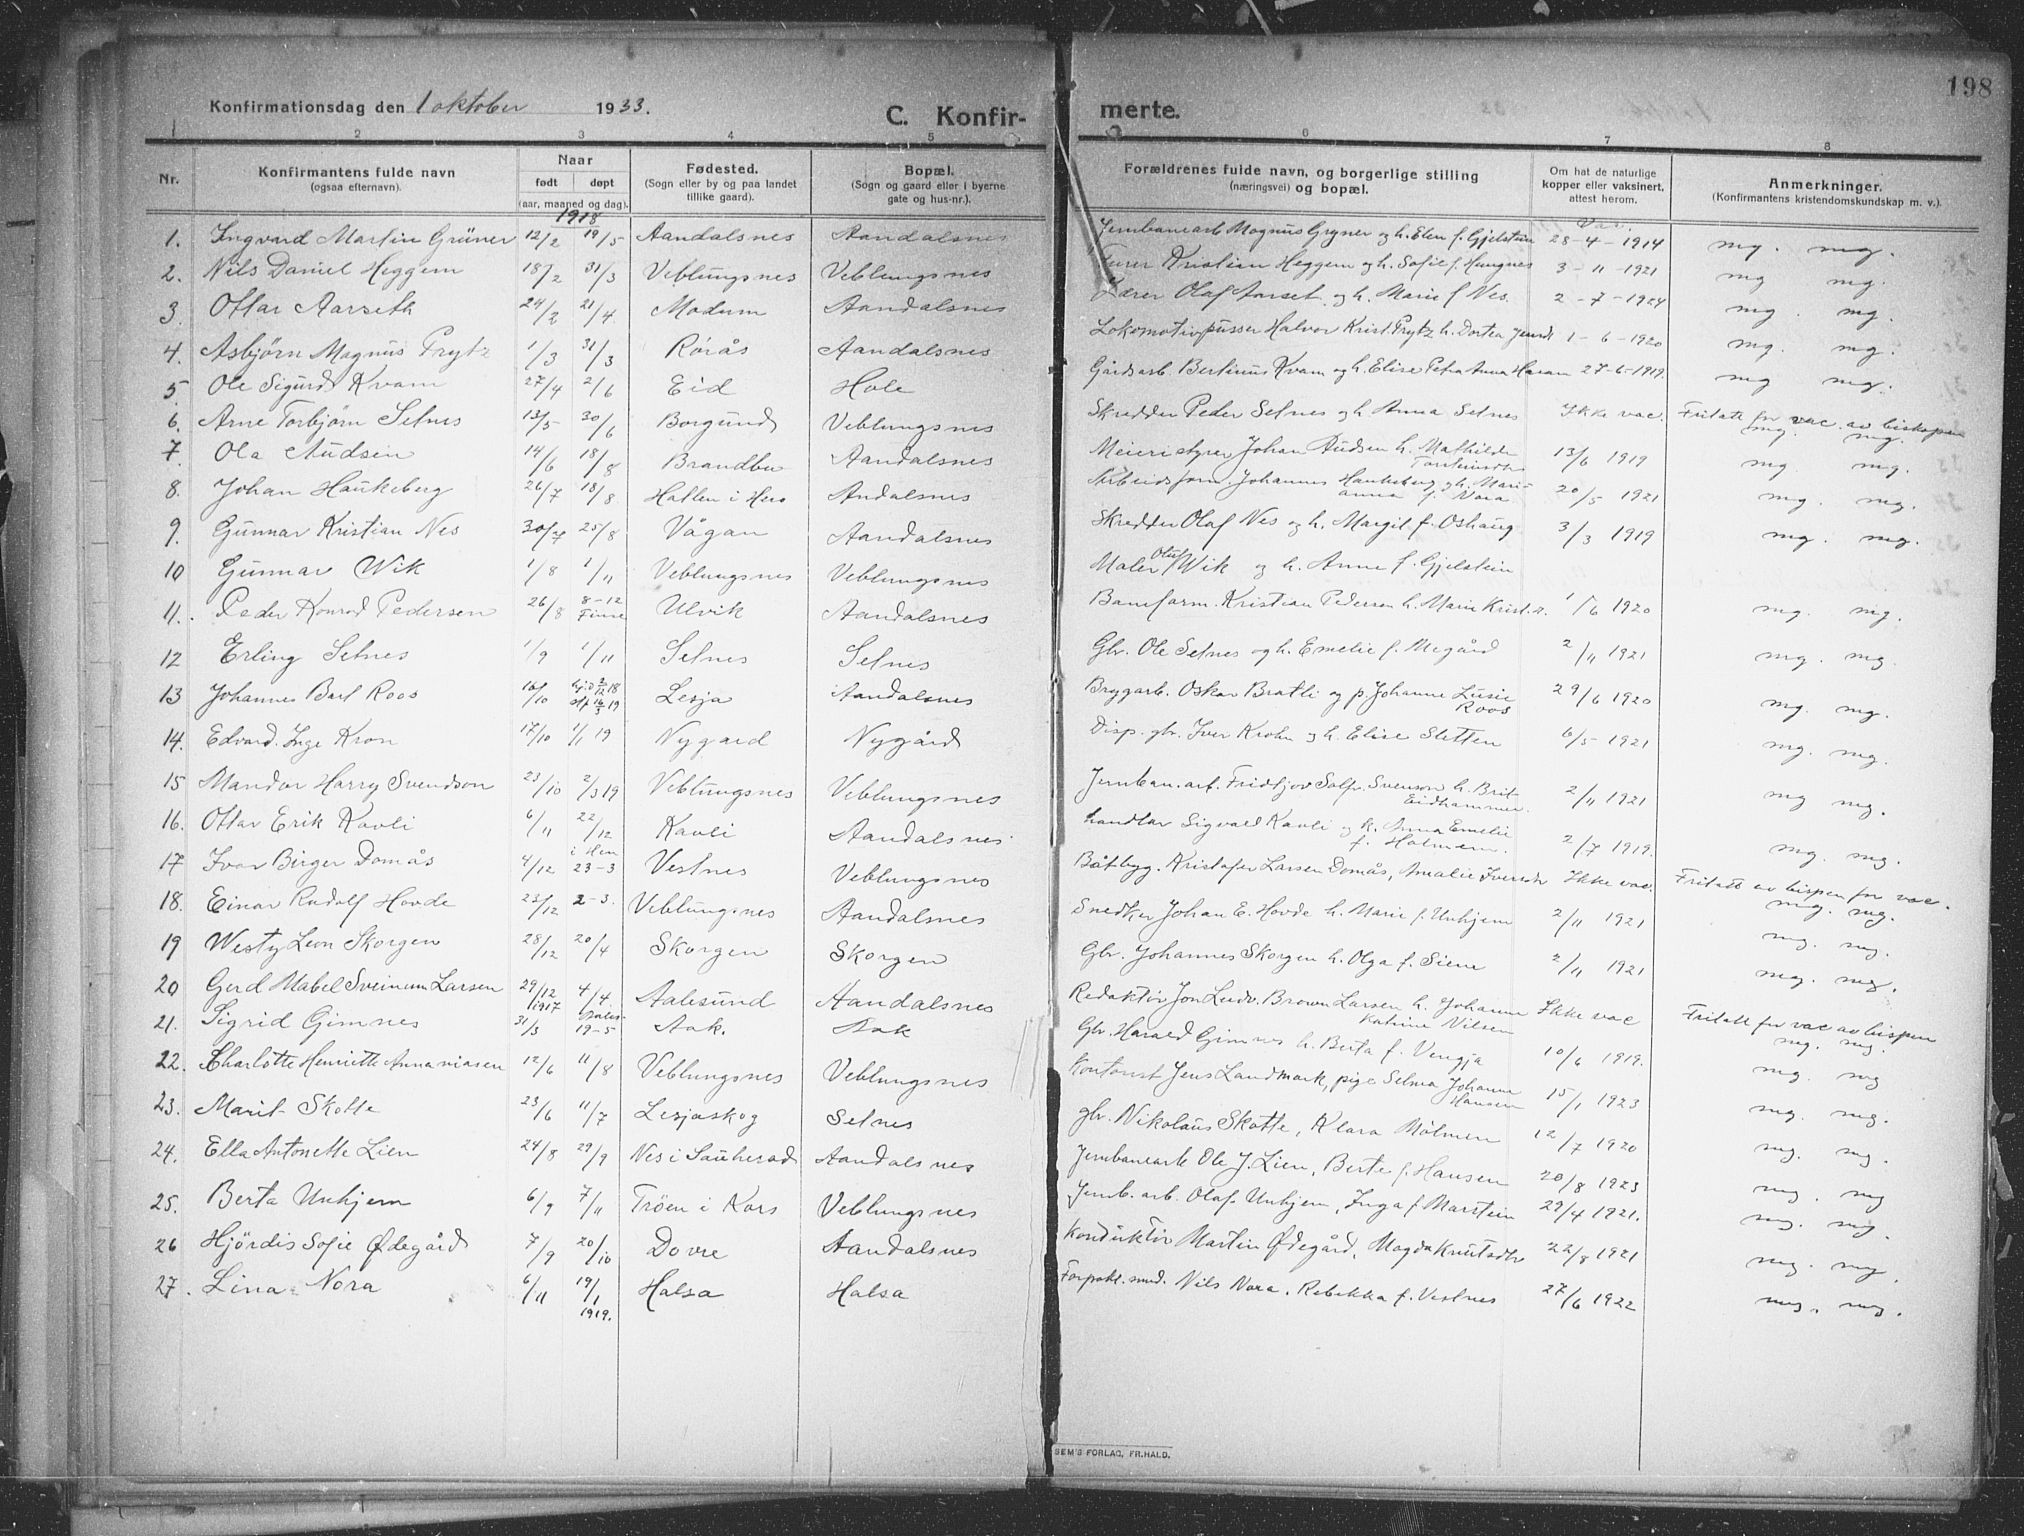 198
Konfirmationsdag den 1 oktober 1933.
C. Konfir- merte.
1 2 3 4 5 6 7 8
Nr. Konfirmantens fulde navn (ogsaa efternavn). Naar født døpt (aar, maaned og dag). Fødested. (Sogn eller by og paa landet tillike gaard). Bopæl. (Sogn og gaard eller i byerne gate og hus-nr.). Forældrenes fulde navn, og borgerlige stilling (næringsvei) og bopæl. Om hat de naturlige kopper eller vaksinert, attest herom. Anmerkninger. (Konfirmantens kristendomskundskap m. v.).
1918 Vac.
1. Ingvard Martin Grüner 12/2 19/5 Aandalsnes Aandalsnes Jernbanearb Magnus Gryner og h. Elen f. Gjelstein 28-4-1914 mg. mg.
2. Nils Daniel Heggem 18/2 31/3 Veblungsnes Veblungsnes Furer Kristian Heggem og h. Sofie f. Hungnes 3-11-1921 mg mg.
3. Ottar Aarseth 24/2 21/4 Modum Aandalsnes Lærer Olaf Aarset og h. Marie f Nes. 2-7-1924 mg. mg.
4. Asbjörn Magnus Frytz 1/3 31/3 Rørås Aandalsnes Lokomotivpusser Halvor Krist. Frytz h. Dortea Jensdt 1-6-1920 mg. mg.
5. Ole Sigurd Kvam 27/4 2/6 Eid Hole Gårdsarb. Bertinus Kvam og h. Elise Petra Anna Haram 27-6-1919. mg mg.
6. Arne Torbjørn Setnes 13/5 30/6 Borgund Veblungsnes Skredder Peder Setnes og h Anna Setnes Ikke vac. Fritatt for vac. av biskopen mg. mg.
7. Ola Audsen 14/6 18/8 Brandbu Aandalsnes Meieristyrer Johan Audsen h. Mathilde Torsteinsdtr 13/6 1919 mg. mg.
8. Johan Haukeberg 26/7 18/8 Hatlen i Herø Andalsnes Arbeidsform. Johannes Haukeberg og h. Marianna f. Nora 20/5 1921 mg. mg.
9. Gunnar Kristian Nes 30/7 25/8 Vågan Aandalsnes Skredder Olaf Nes og h. Margit f. Oshaug 3/3 1919 mg. mg.
10 Gunnar Wik 1/8 1/11 Veblungsnes Veblungsnes Maler Oluf Wik og h. Anne f. Gjelstein
11. Peder Konrad Pedersen 26/8 8-12 Finse Ulvik Aandalsnes Baneform. Kristian Pedersen h. Marie Krist. 1/6 1920 mg. mg.
12 Erling Setnes 1/9 1/11 Setnes Setnes Gbr. Ole Setnes og h. Emelie f. Megård 2/11 1921 mg. mg.
13 Johannes Barl Roos 16/10 hjd 2/12 18 stf 16/3 19 Lesja Aandalsnes Brygarb. Oskar Bratli og p. Johanne Lusie Roos 29/6 1920 mg. mg.
14. Edvard Inge Kron 17/10 1/1 19 Nygard Nygård Disp. gbr. Iver Krohn og h. Elise Sletten 6/5 1921 mg. mg.
15 Mandor Harry Svendson 23/10 2/3 19 Veblungsnes Veblungsnes Jernban. arb. Fridtjov Salfr. Svenson h. Brit Eidhammer. 2/11 1921 mg mg.
16. Ottar Erik Kavli 6/11 22/12 Kavli Aandalsnes handlar Sigvald Kavli og h. Anna Emelie f. Holmem. 2/7 1919. mg mg.
17 Ivar Birger Domås 4/12 i Hen 23-3 Vestnes Veblungsnes Båtbyg. Kristofer Larsen Domås, Amalie Iversdtr Ikke vac. Fritatt av bispen for vac. mg. mg.
18. Einar Rudolf Hovde 23/12 2-3. Veblungsnes Aandalsnes Snedker Johan E. Hovde h. Marie f. Unhjem 2/11 1921 mg. mg.
19 Westy Leon Skorgen 28/12 20/4 Skorgen Skorgen Gbr. Johannes Skorgen h. Olga f. Siene 2/11 1921 mg. mg.
20 Gerd Mabel Sveinum Larsen 29/12 1917 4/4. Aalesund Aandalsnes Redaktör Jon Ludv. Brown Larsen h. Johanne Katrine Nilsen Ikke vac Fritatt for vac av bispen mg. mg.
21. Sigrid Gimnes 31/3 19-5 Aak. Aak Gbr. Harald Gimnes h. Berta f. Vengja 10/6 1919. mg. mg
22. Charlotte Henriette Annaniasen 12/6 11/8 Veblungsnes Veblungsnes Kontorist Jens Landmark, pige Selma Johanne Hansen 15/1 1923 mg. mg.
23. Marit Skotte 23/6 11/7 Lesjaskog Setnes gbr. Nikolaus Skotte, Klara Mölmen 12/7 1920 mg. mg.
24. Ella Antonette Lien 24/8 29/9 Nes i Sauherad Aandalsnes Jernbanearb Ole J. Lien, Berte f. Hansen 20/8 1923 mg. mg
25. Berta Unhjem 6/9 7/11 Trøen i Kors Veblungsnes Jernb. arb. Olaf Unhjem, Inga f Marstein 29/4 1921. mg. mg.
26 Hjördis Sofie Ødegård 7/9 20/10 Dovre Aandalsnes Konduktör Martin Ødegård, Magda Knutsdtr 22/8 1921 mg. mg.
27. Lina Nora 6/11 19/1 1919. Halsa Halsa Forpakt. Nils Nora, Rebekka f. Vestnes 27/6 1922 mg. mg.
SEM'S FORLAG, FR.HALD.